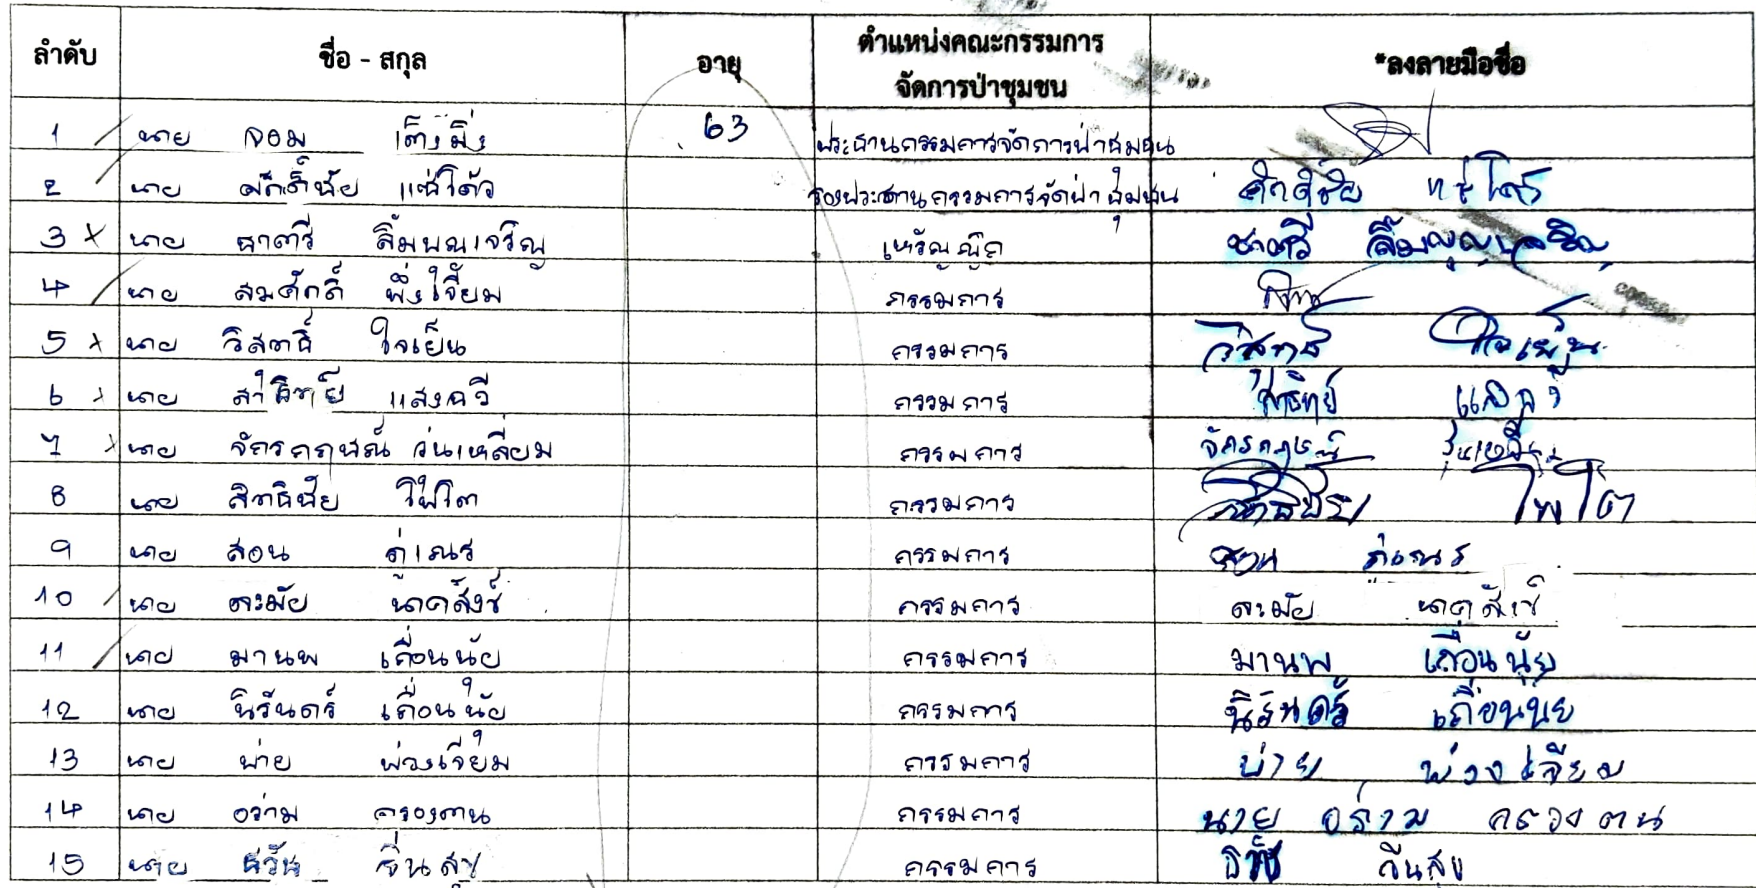 ลำดับ ชื่อ - สกุล อายุ ตำแหน่งคณะกรรมการจัดการป่าชุมชน *ลงลายมือชื่อ
1 นาย จอม เต็งมิ่ง 63 ประธานกรรมการจัดการป่าชุมชน
2 นาย ศักดิ์ชัย แซ่โค้ว รองประธานกรรมการจัดป่าชุมชน ศักดิ์ชัย แซ่โค้ว
3 นาย ชาตรี ลิ้มบุญเจริญ เหรัญญิก ชาตรี ลิ้มบุญเจริญ
4 นาย สมศักดิ์ พึ่งใจ้ยม กรรมการ
5 นาย วิสุทธิ์ ใจเย็น กรรมการ วิสุทธิ์ ใจเย็น
6 นาย สาธิทย์ แสงฉวี กรรมการ สาธิทย์ แสงฉวี
7 นาย จักรกฤษณ์ วุ่นเหลี่ยม กรรมการ จักรกฤษณ์ วุ่นเหลี่ยม
8 นาย สิทธิชัย โพธิ์โต กรรมการ สิทธิชัย โพโต
9 นาย สอน ภู่เณร กรรมการ สอน ภู่เณร
10 นาย ละมัย นาคสังข์ กรรมการ ละมัย นาคสังข์
11 นาย มานพ เถื่อนนุ้ย กรรมการ มานพ เถื่อนนุ้ย
12 นาย นิรันดร์ เถื่อนนุ้ย กรรมการ นิรันดร์ เถื่อนนุ้ย
13 นาย พ่าย พ่วงเจี่ยม กรรมการ พ่าย พ่วงเจี่ยม
14 นาย อร่าม ครองตน กรรมการ นาย อร่าม ครองตน
15 นาย ธวัช จีนสุข กรรมการ ธวัช จีนสุข